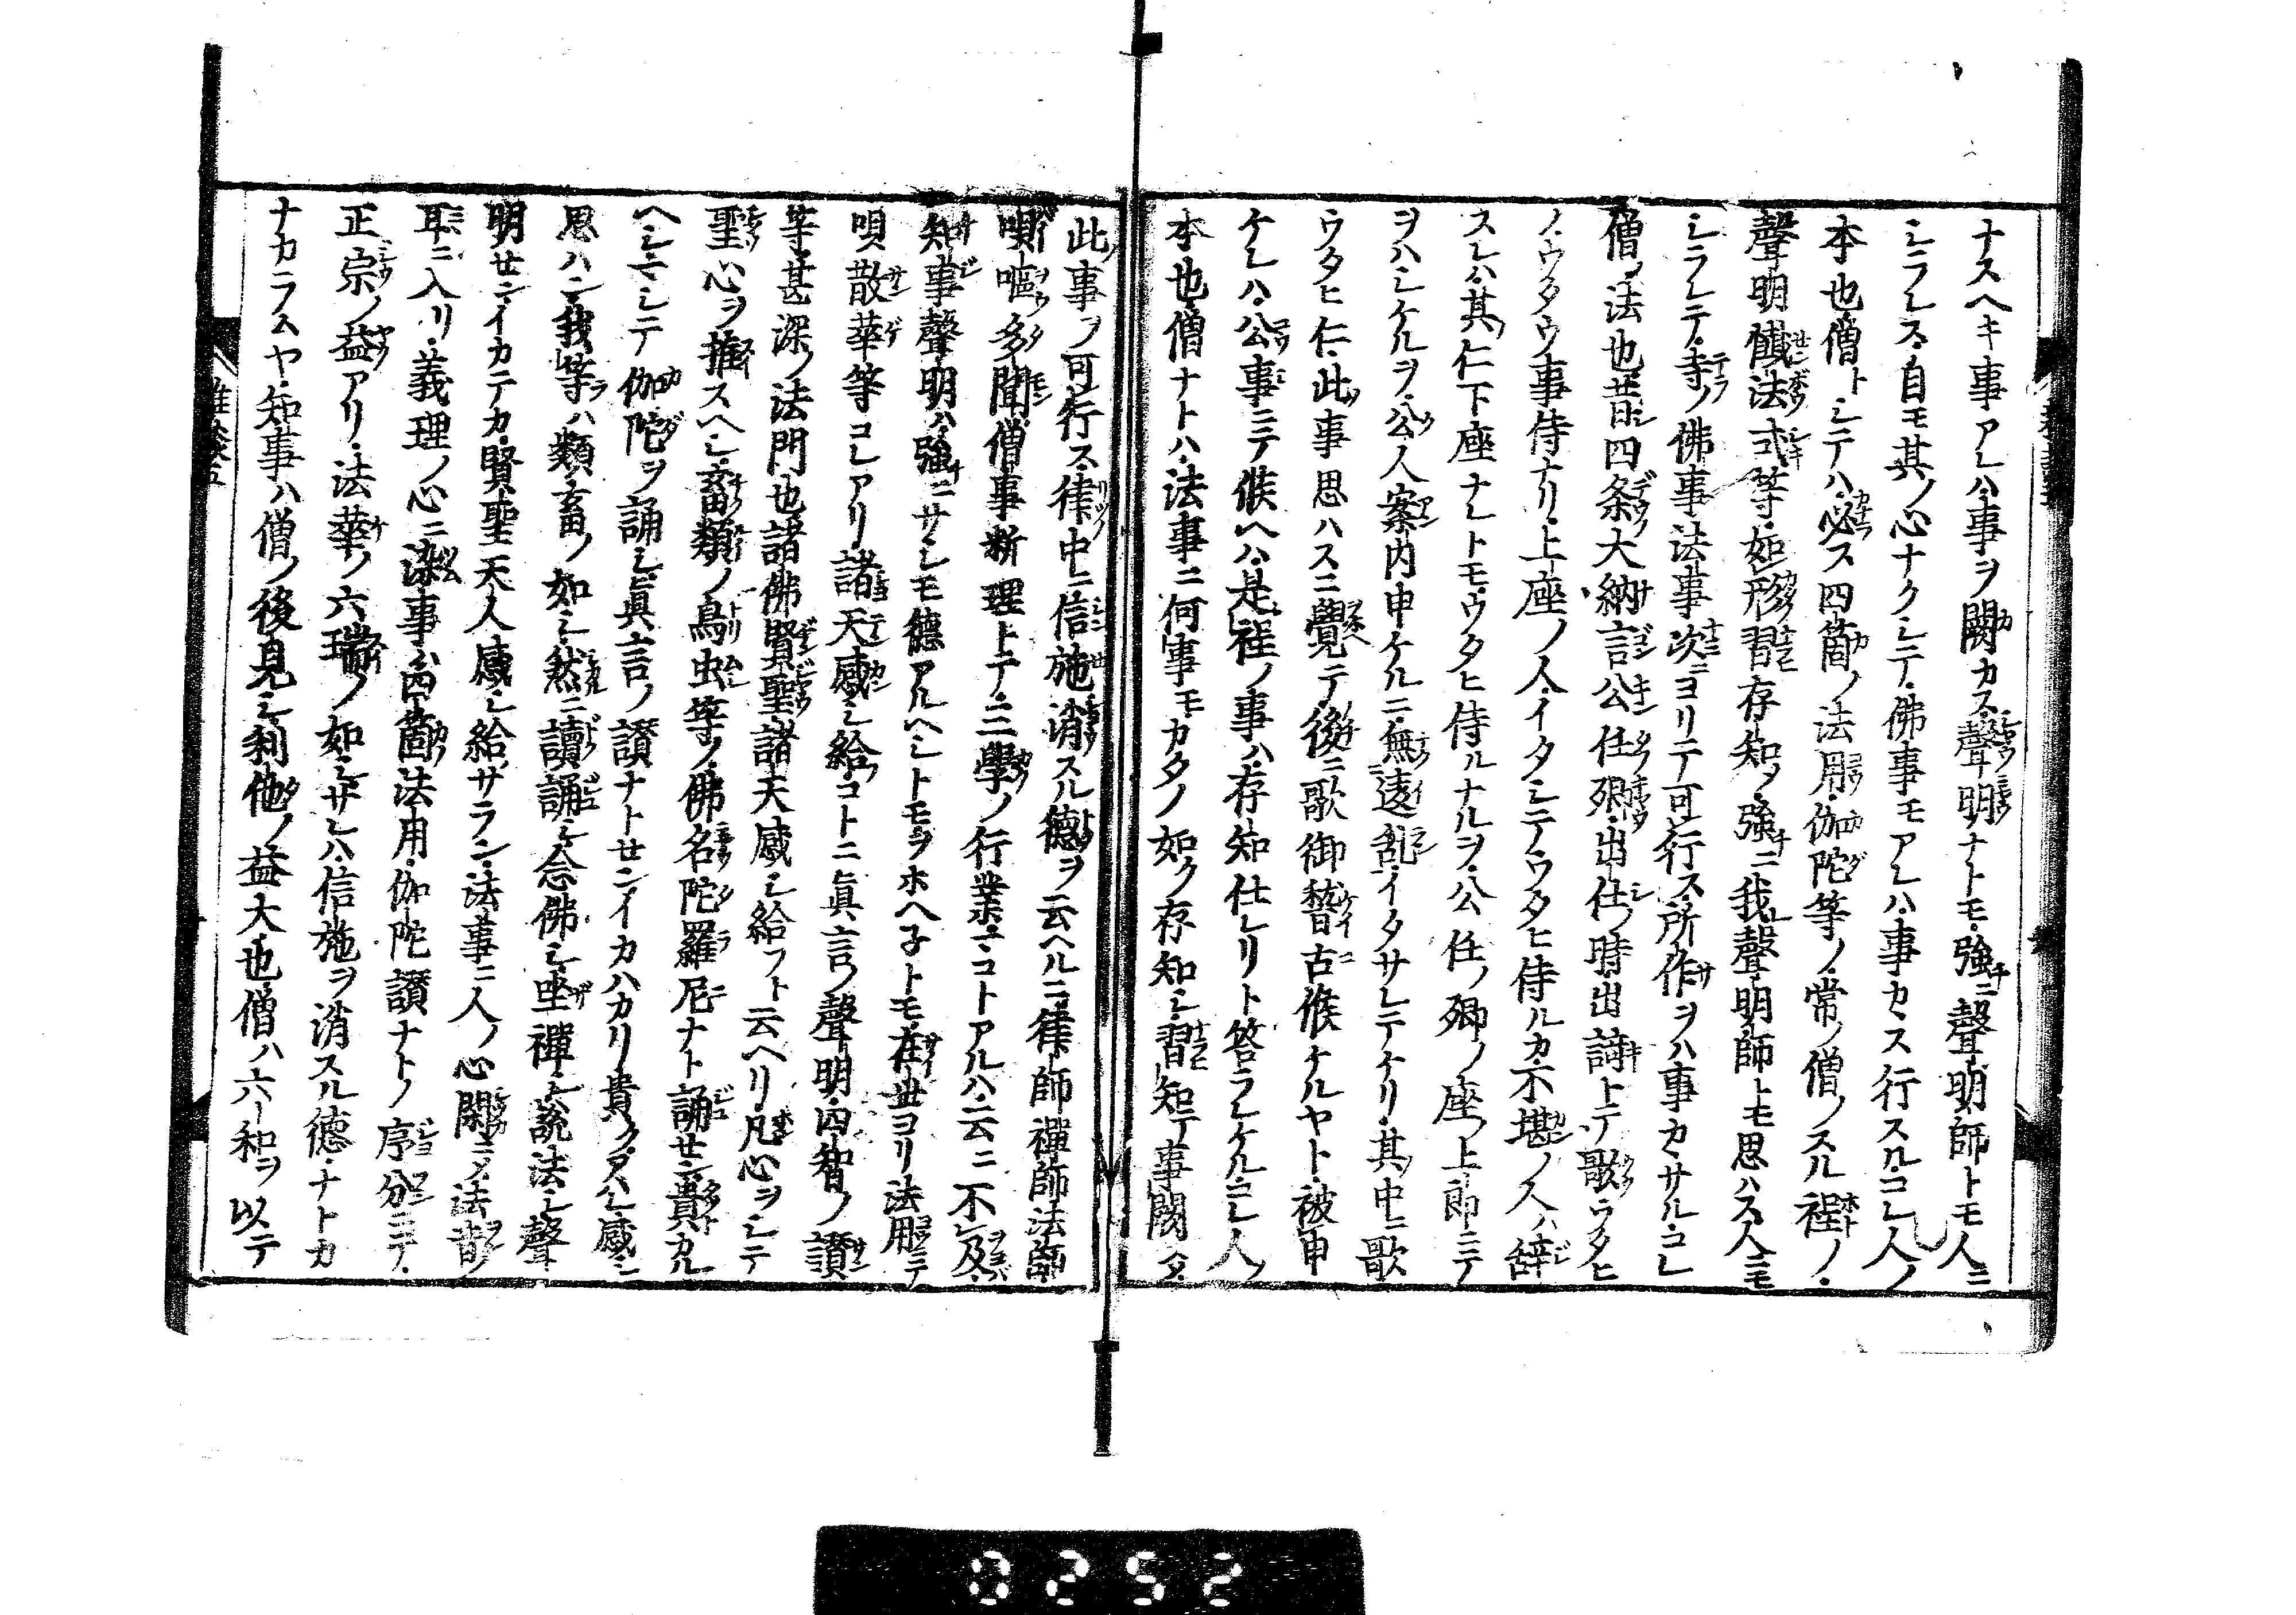 ナスヘキ事アレハ事ヲ闕カス聲明ナトモ強ニ聲明師トモ人ニ
シラレス自モ其ノ心ナクシテ佛事モアレハ事カス行スルコレ人ノ
本也僧トシテハ必ス四箇ノ法用伽陀等ノ常ノ僧ノスル程ノ
聲明懴法式等如形習存知メ強ニ我聲明師トモ思ハス人ニモ
シラレテ寺ノ佛事法事次ニヨリテ可行ス所作ヲハ事カヽサルコレ
僧ノ法也昔四条大納言公任卿出仕ノ時出詩トテ歌ウタヒ
ノウタウ事侍ナリ上座ノ人イタシテウタヒ侍ルカ不堪ノ人ハ辞
スレハ其仁下座ナレトモウタヒ侍ルナルヲ公任ノ卿ノ座ノ上郎ニテ
ヲハシケルヲ公人案内申ケルニ無違乱イタサレテケリ其中ニ歌
ウタヒ仁此事思ハスニ覺テ後ニ歌御稽古候ケルヤト被申
ケレハ公事ニテ候ヘハ是程ノ事ハ存知仕レリト答ラレケルコレ人ノ
本也僧ナトハ法事ニ何事モカタノ如ク存知シ習知テ事闕タ
此事ヲ可行ス律中ニ信施消スル德ヲ云ヘルニ律師禪師法師
唄嘔多聞僧事断理トテ三學ノ行業ニコトアルハ云ニ不及
知事聲明ハ強ニサシモ德アルヘシトモヲホヘ子トモ在世ヨリ法用ニテ
唄散華等コレアリ諸天感シ給コトニ眞言ノ聲明四智ノ讃
等甚深ノ法門也諸佛賢聖諸天感シ給フト云ヘリ凡心ヲシテ
聖心ヲ推スヘシ畜類ノ鳥虫等ノ佛名陀羅尼ナト誦セシ貴カル
ヘシニシテ伽陀ヲ誦シ眞言ノ讃ナトセンイカハカリ貴クヌハ感シ
思ハン我等ハ類畜ノ如シ然ニ讀誦シ念佛シ坐禪シ説法シ聲
明センイカテカ賢聖天人感シ給サラン法事ニ人ノ心閑ニメ法音
耳ニ入リ義理ノ心ニ染事ハ四箇法用伽陀讃ナトノ序分ニテ
正宗ノ益アリ法華ノ六瑞ノ如シサレハ信施ヲ消スル德ナトカ
ナカラスヤ知事ハ僧ノ後見シ利他ノ益大也僧ハ六和ヲ以テ
雜談五
0252